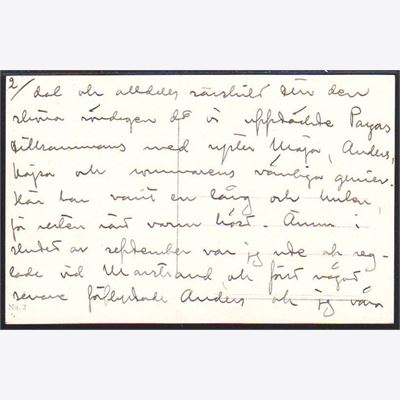 2/ dal och alldeles särskilt den
sköna söndagen då vi upptäckte Payas
tillsammans med syster Maja, Anders,
Kajsa och sommarens vänliga genier.
Här har varit en lång och
för resten rätt varm höst. Ännu i
slutet av september var jag ute och seg-
lade vid Marstrand och först något
senare förflyttade Anders och jag våra
No. 2